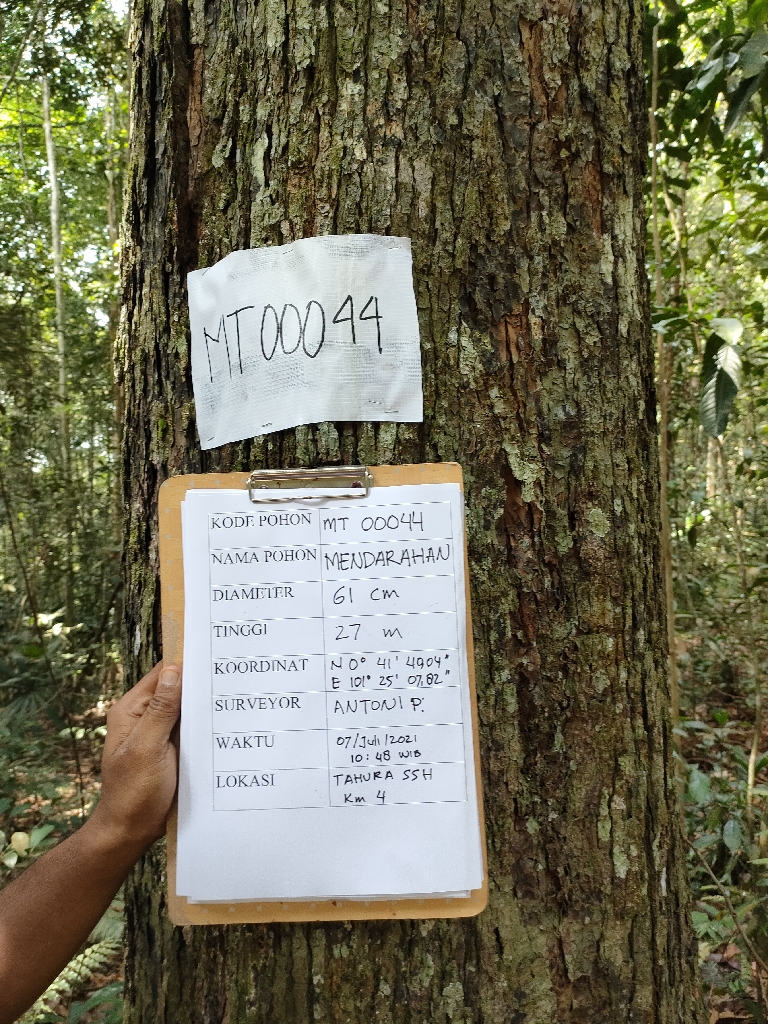 MT 00044
KODE POHON MT 00044
NAMA POHON MENDARAHAN
DIAMETER 61 cm
TINGGI 27 m
KOORDINAT N 0° 41' 49,04"
E 101° 25' 07,82"
SURVEYOR ANTONI P.
WAKTU 07/Juli/2021
10:48 WIB
LOKASI TAHURA SSH
Km 4